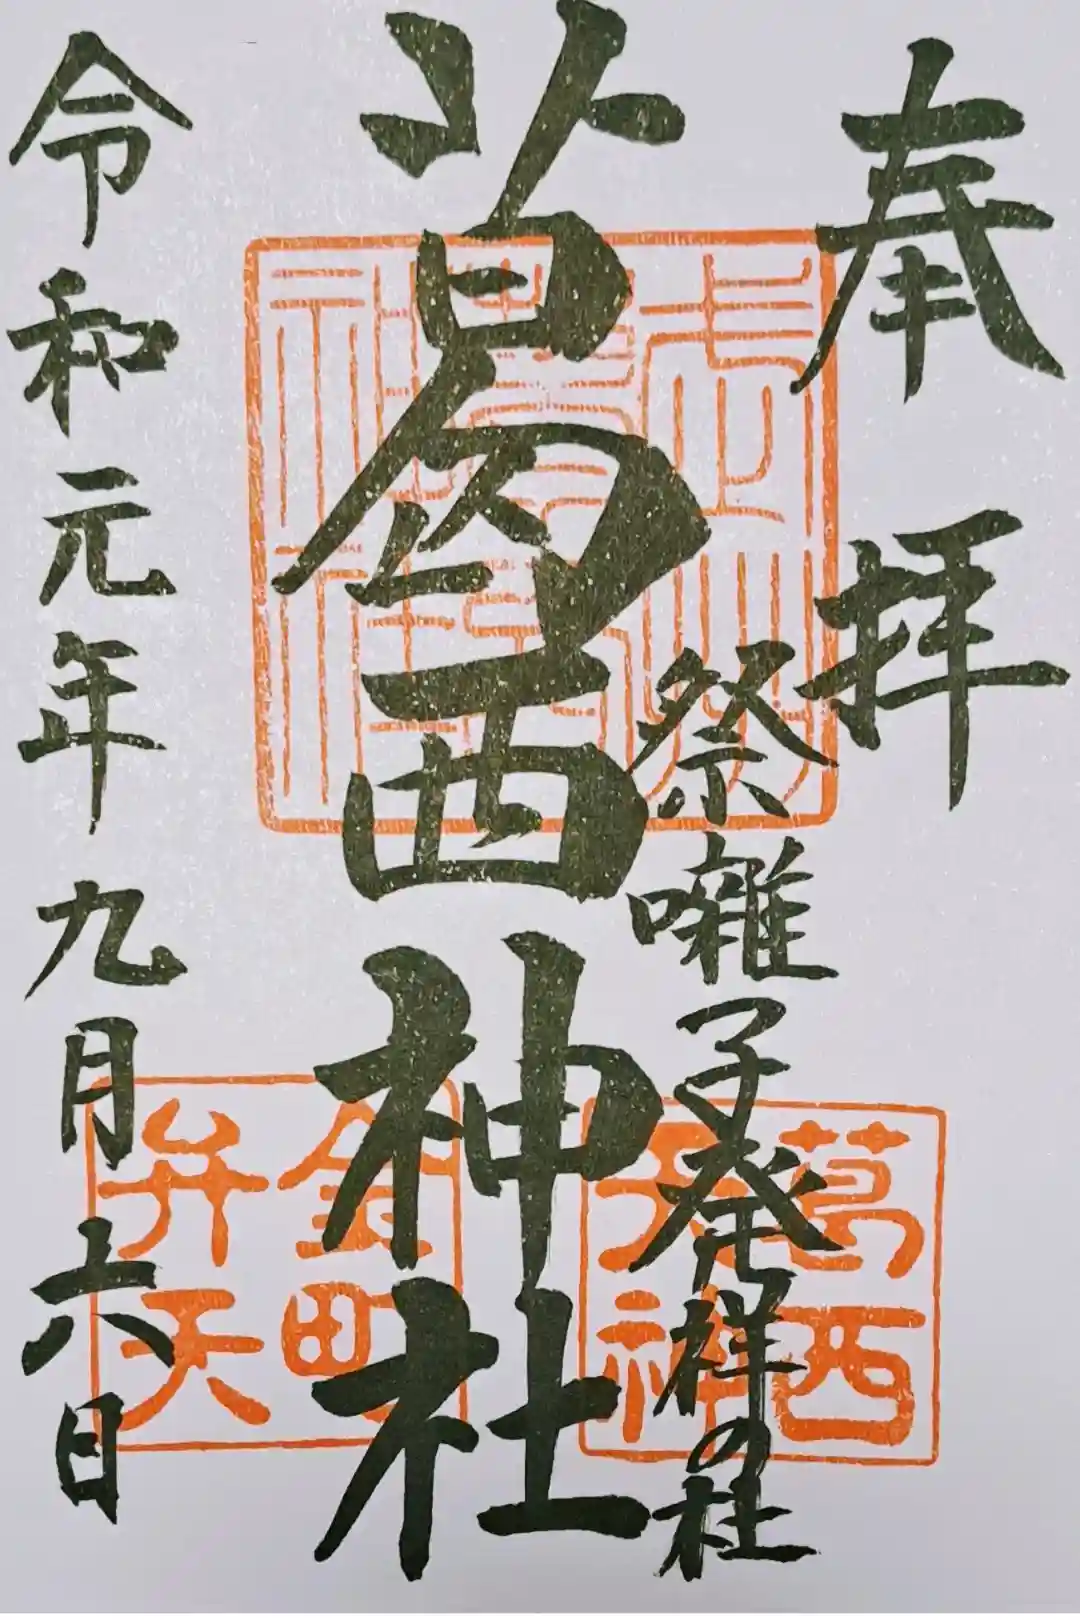 奉拝
祭囃子発祥の社
葛西神社
令和元年九月六日
葛西
天神
金町
弁天